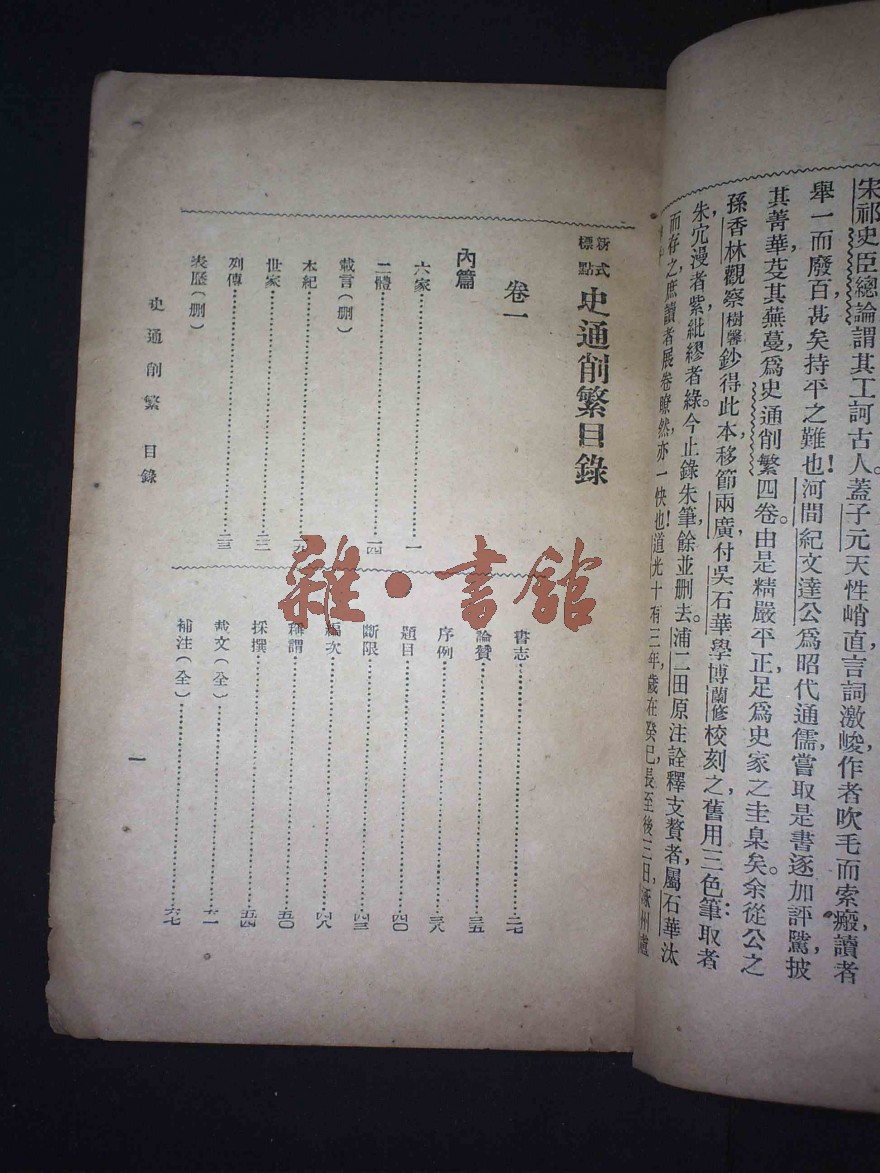 宋祁史臣總論謂其工訶古人。蓋子元天性峭直，言詞激峻，作者吹毛而索瘢，讀者
舉一而廢百，甚矣持平之難也！河間紀文達公為昭代通儒，嘗取是書，逐加評騭，披
其菁華，芟其蕪蔓，為史通削繁四卷。由是精嚴平正，足為史家之圭臬矣。余從公之
孫香林觀察樹馨鈔得此本，移節兩廣，付吳石華學博蘭修校刻之。舊用三色筆：取者
朱，宂漫者紫，紕繆者綠。今止錄朱筆，餘並删去。浦二田原注，詮釋支贅者，屬石華汰
而存之，庶讀者展卷瞭然，亦一快也！道光十有三年，歲在癸巳長至後三日，涿州盧
新式標點 史通削繁目錄
卷一
內篇
六家 一
二體 一四
載言（删）
本紀 一九
世家 二二
列傳 二三
表歷（删）
書志 二七
論贊 三五
序例 三八
題目 四〇
斷限 四三
編次 四八
稱謂 五〇
採撰 五四
載文（全） 六一
補注（全） 六七
史通削繁 目錄
一
雜·書館